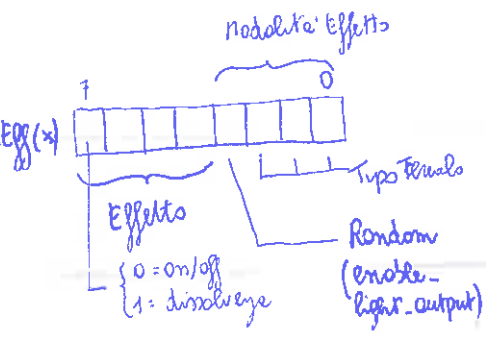 Modalità Effetto
7 0
Eff(x)
Tipo
Effetto
Random
(enable_
light_output)
0 = on/off
1 = dissolvenza